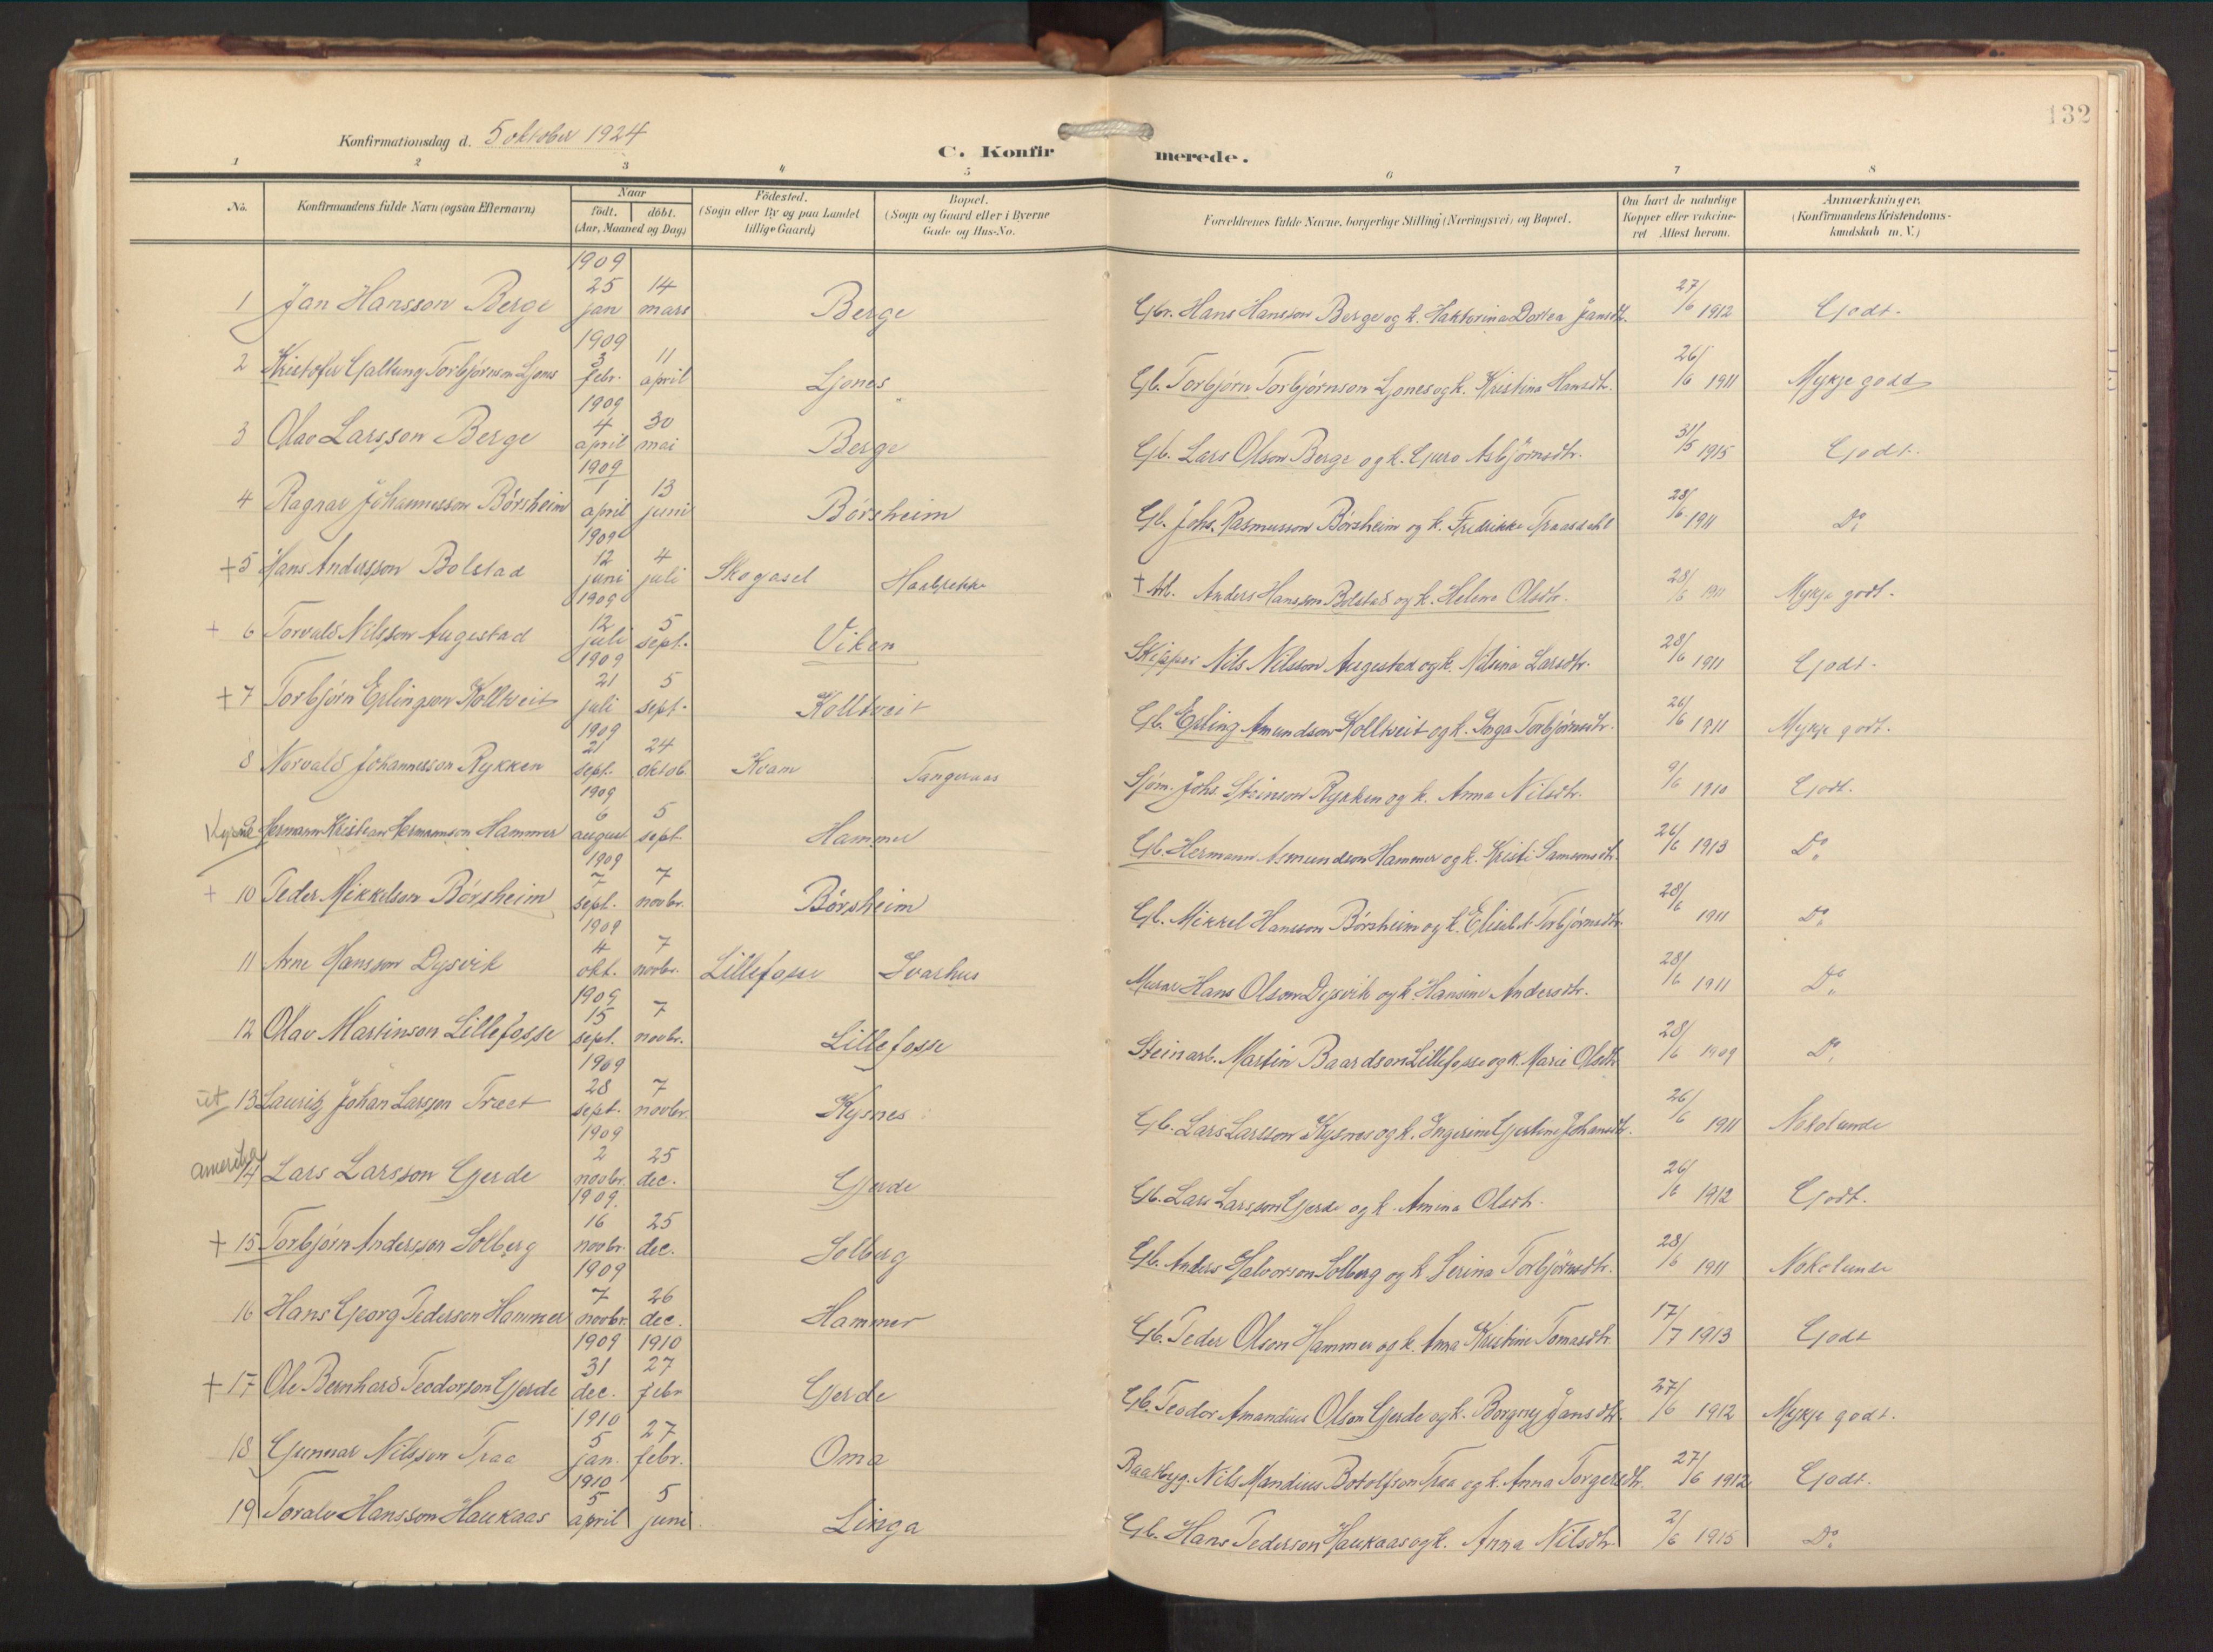 132
Konfirmationsdag d. 5 oktober 1924
C. Konfirmerede.
1 2 3 4 5 6 7 8
No. Konfirmandens fulde Navn (ogsaa Efternavn) Naar født. døbt. (Aar, Maaned og Dag) Fødested. (Sogn eller By og paa Landet tillige Gaard) Bopæl. (Sogn og Gaard eller i Byerne Gade og Hus-No. Forældrenes fulde Navne, borgerlige Stilling (Næringsvei) og Bopæl. Om havt de naturlige Kopper eller vakcineret Attest herom. Anmærkninger. (Konfirmandens Kristendomskundskab m. V.)
1 Jan Hansson Berge 1909 25 jan 14 mars Berge Gbr. Hans Hansson Berge og k. Haktorina Dortea Jansdtr. 27/6 1912 Godt.
2 Kristofer Galtung Torbjørnson Ljones 1909 3 febr. 11 april Ljones Gb. Torbjørn Torbjørnson Ljones og k. Kristina Hansdtr. 26/6 1911 Mykje godt
3 Olav Larsson Berge 1909 4 april 30 mai Berge Gb. Lars Olson Berge og k. Guro Asbjörnsdtr. 31/5 1915 Godt.
4 Ragnar Johannesson Børsheim 1909 1 april 13 juni Børsheim Gb. Johs. Rasmusson Børsheim og k. Fredrikke Traasdahl 28/6 1911 Do
+ 5 Hans Andersson Bolstad 1909 12 juni 4 juli Skogasel + Arb. Anders Hansson Bolstad og k. Helene Olsdtr. 28/6 1911 Mykje godt.
+ 6 Torvald Nilsson Augestad 1909 12 juli 5 sept. Viken Skipper Nils Nilsson Augestad og k. Nilsina Larsdtr. 28/6 1911 Godt.
+ 7 Torbjørn Erlingson Kolltveit 1909 21 juli 5 sept. Kolltveit Gb. Erling Amundson Kolltveit og k. Inga Torbjørnsdtr. 26/6 1911 Mykje godt.
8 Norvald Johannesson Rykken 1909 21 sept. 24 oktob. Kvam Tangeraas Sjøm. Johs. Steinson Rykken og k. Anna Nilsdtr. 9/6 1910 Godt.
9 Hermann Kristian Hermannson Hammer 1909 6 august 5 sept. Hammer Gb. Hermann Asmundson Hammer og k. Kristi Samsonsdtr. 26/6 1913 Do
+ 10 Peder Mikkelson Børsheim 1909 7 sept. 7 novbr. Børsheim Gb. Mikkel Hansson Børsheim og k. Elisabet Torbjørnsdtr. 28/6 1911 Do
11 Arne Hansson Dysvik 1909 4 okt. 7 novbr. Lillefosse Ivarhus Murar Hans Olson Dysvik og k. Hansine Andersdtr. 28/6 1911 Do
12 Olav Martinson Lillefosse 1909 15 sept. 7 novbr. Lillefosse Steinarb. Martin Baardson Lillefosse og k. Marie Olsdtr 28/6 1909 Do
ut 13 Lauritz Johan Larsson Træet 1909 28 sept. 7 novbr. Kysnes Gb. Lars Larsson Kysnes og k. Ingerine Gjertine Johansdtr. 26/6 1911 Nokolunde
amerika 14 Lars Larsson Gjerde 1909 2 novbr. 25 dec. Gjerde Gb. Lars Larsson Gjerde og k. Amina Olsdtr. 26/6 1912 Godt.
+ 15 Torbjørn Andersson Solberg 1909 16 novbr. 25 dec. Solberg Gb. Anders Halvorson Solberg og k. Serina Torbjörnsdtr. 28/6 1911 Nokolunde
16 Hans Georg Pederson Hammer 1909 7 novbr. 26 dec. Hammer Gb. Peder Olson Hammer og k. Anna Kristine Tomasdtr. 17/7 1913 Godt
+ 17 Ole Bernhard Teodorson Gjerde 1909 31 dec. 1910 27 febr Gjerde Gb. Teodor Amandius Olson Gjerde og k. Borgny Jansdtr. 27/6 1912 Mykje godt.
18 Gunnar Nilsson Traa 1910 5 jan. 27 febr. Oma Baatbyg. Nils Mandius Botolfson Traa og k. Anna Torgersdtr. 27/6 1912 Godt.
19 Toralv Hansson Haukaas 1910 5 april 5 juni Linga Gb. Hans Pederson Haukaas og k. Anna Nilsdtr. 2/6 1915 Do